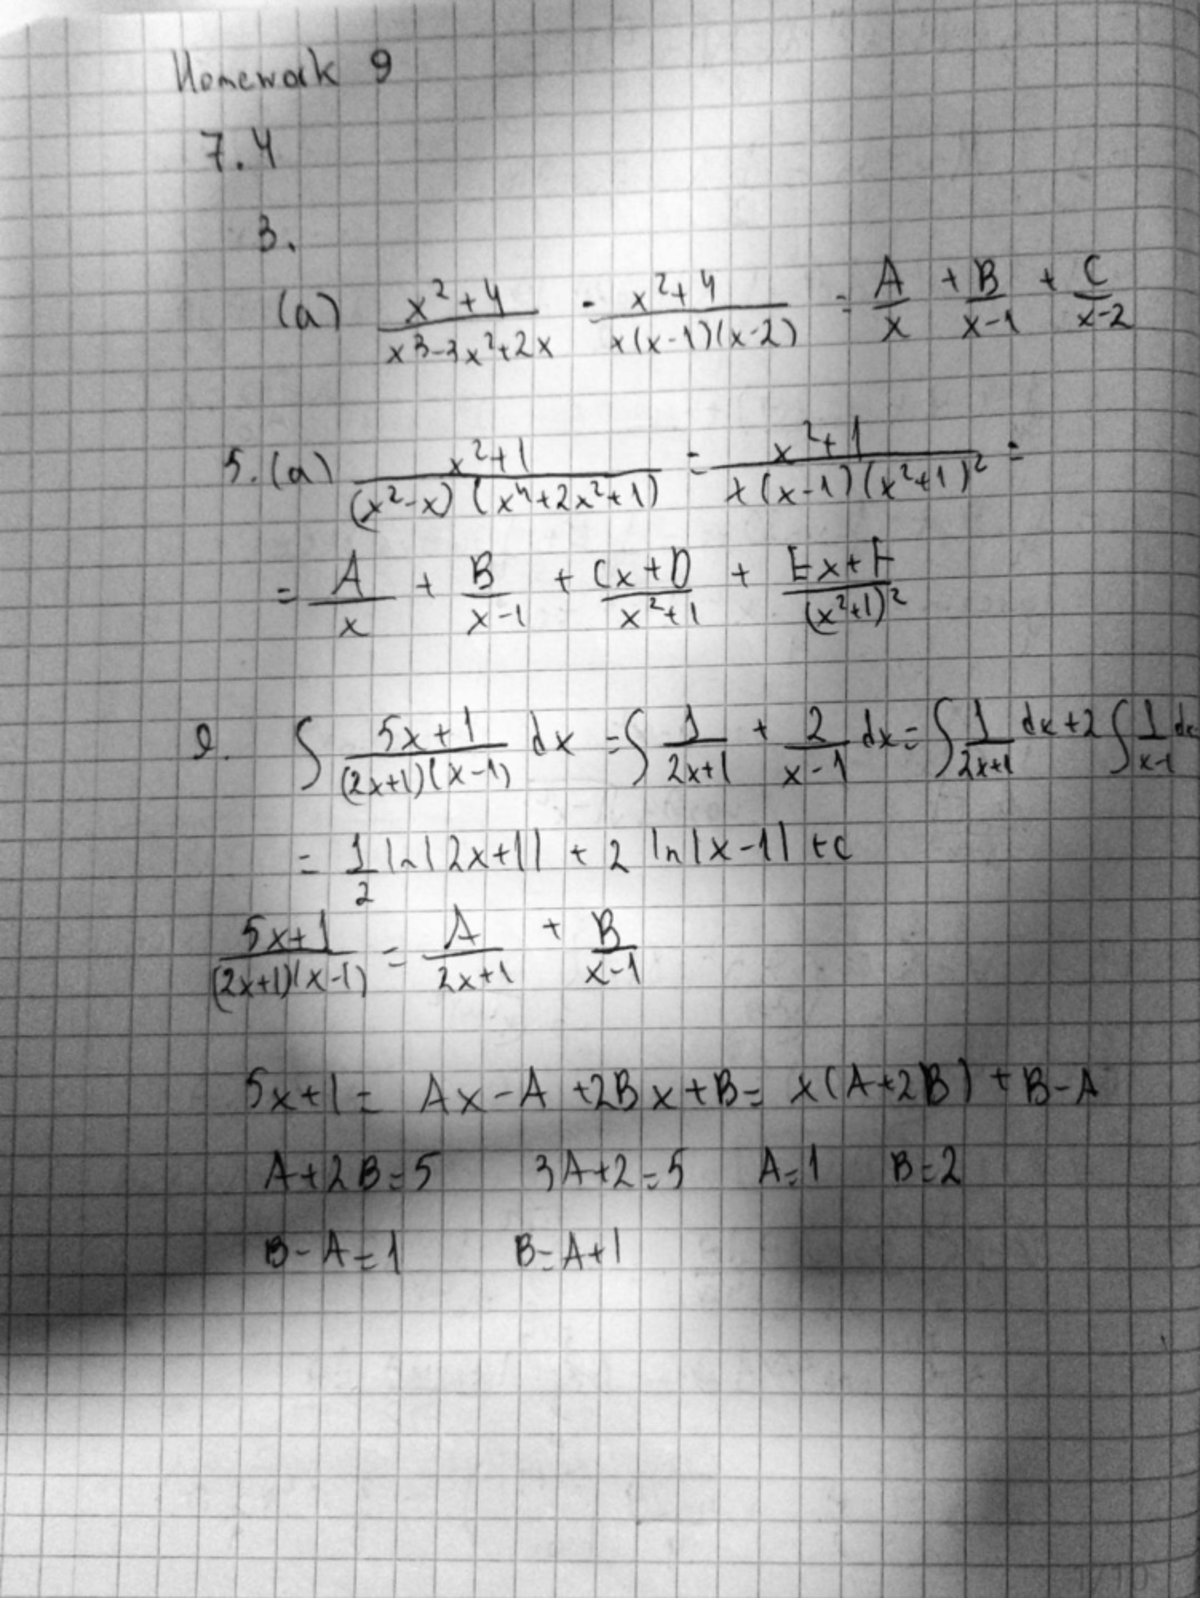 Homework 9
7.4
3.
(a) x²+4 / x³-3x²+2x = x²+4 / x(x-1)(x-2) = A/x + B/x-1 + C/x-2
5. (a) x²+1 / (x²-x)(x⁴+2x²+1) = x²+1 / x(x-1)(x²+1)² =
= A/x + B/x-1 + Cx+D / x²+1 + Ex+F / (x²+1)²
9. ∫ 5x+1 / (2x+1)(x-1) dx = ∫ 1/2x+1 + 2/x-1 dx = ∫ 1/2x+1 dx + 2 ∫ 1/x-1 dx
= 1/2 ln|2x+1| + 2 ln|x-1| + c
5x+1 / (2x+1)(x-1) = A/2x+1 + B/x-1
5x+1 = Ax-A+2Bx+B = x(A+2B)+B-A
A+2B=5 3A+2=5 A=1 B=2
B-A=1 B=A+1
1/10